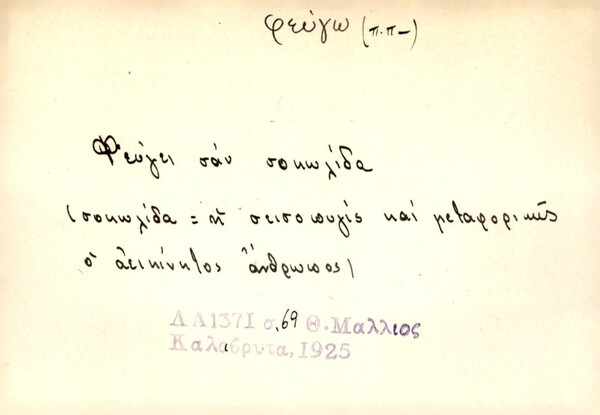 φεύγω (π.π-)
Φεύγει σάν σοκωλίδα
(σοκωλίδα = ἡ σεισοπυγίς καί μεταφορικῶς
ὁ ἀεικίνητος ἄνθρωπος)
ΛΑ1371 σ. 69 Θ. Μαλλιος
Καλαβρυτα, 1925